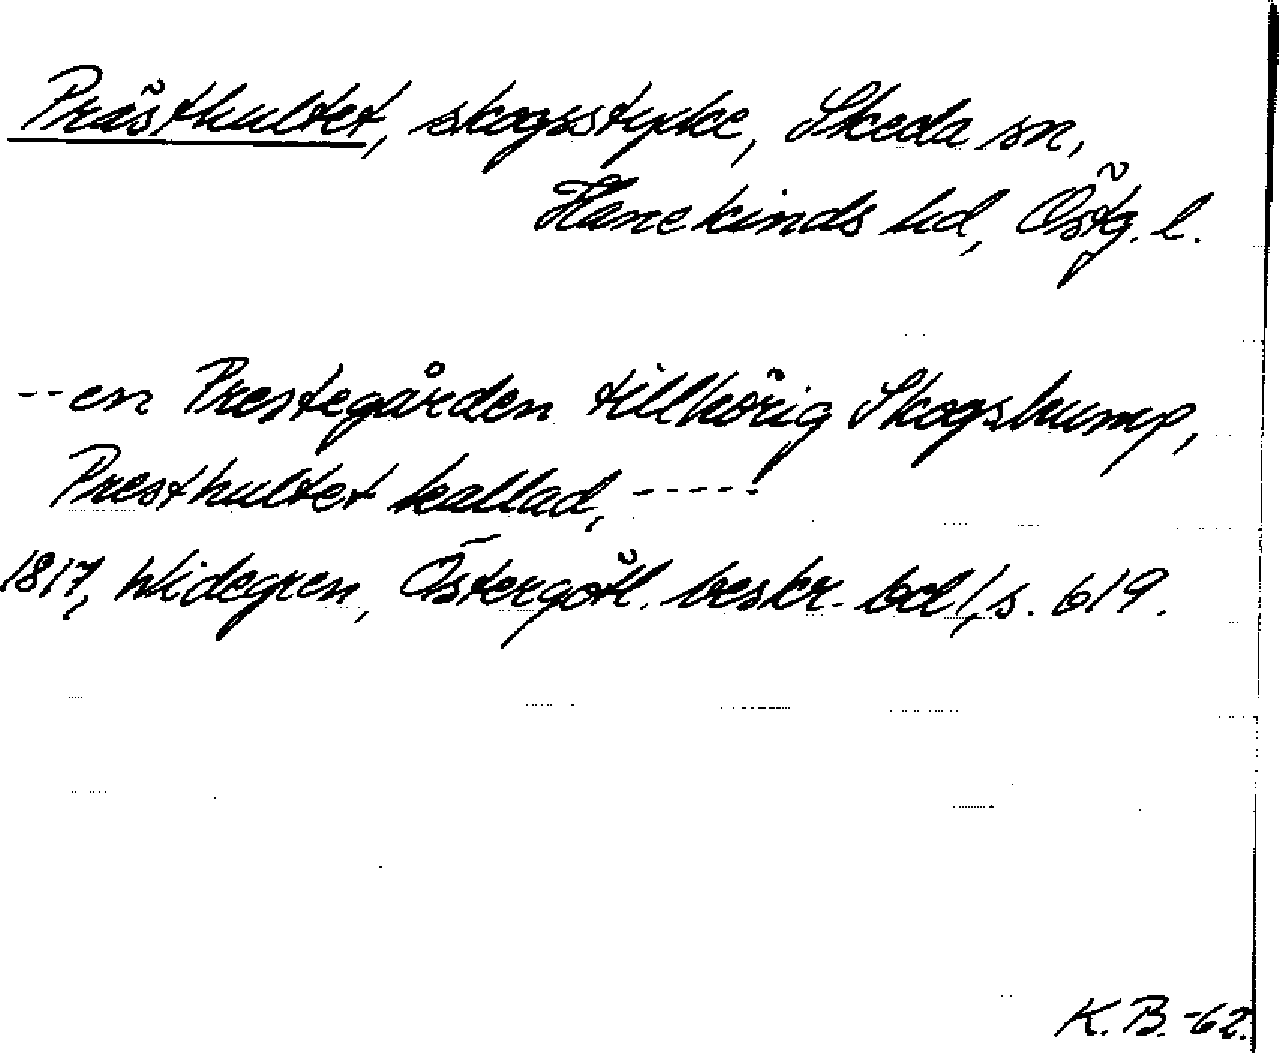 Prästhultet, skogsstycke, Skeda sn,
Hanekinds hd, Östg. l.
-- en Prestegården tillhörig Skogslump,
Presthultet kallad, -----
1817, Widegren, Östergötl. beskr. bd I, s. 619.
K. B. -62.